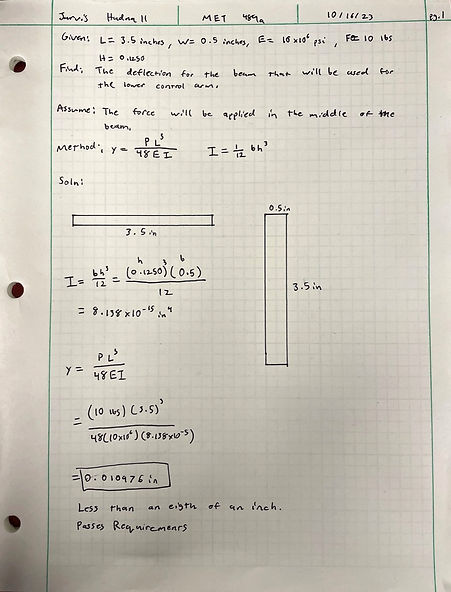 Jarvis Hudna II MET 489a 10/16/23 pg.1
Given: L= 3.5 inches, W= 0.5 inches, E= 10x10⁶ psi, F= 10 lbs
H = 0.1250
Find: The deflection for the beam that will be used for
the lower control arm.
Assume: The force will be applied in the middle of the
beam.
Method: y = PL³/48EI I = 1/12 bh³
Soln:
0.5in
3.5in
3.5 in
I = bh³/12 = (0.1250)³(0.5)/12
h b
= 8.138x10⁻¹⁵ in⁴
y = PL³/48EI
= (10 lbs)(3.5)³/48(10x10⁶)(8.138x10⁻⁵)
= 0.010976 in
Less than an eigth of an inch.
Passes Requirements